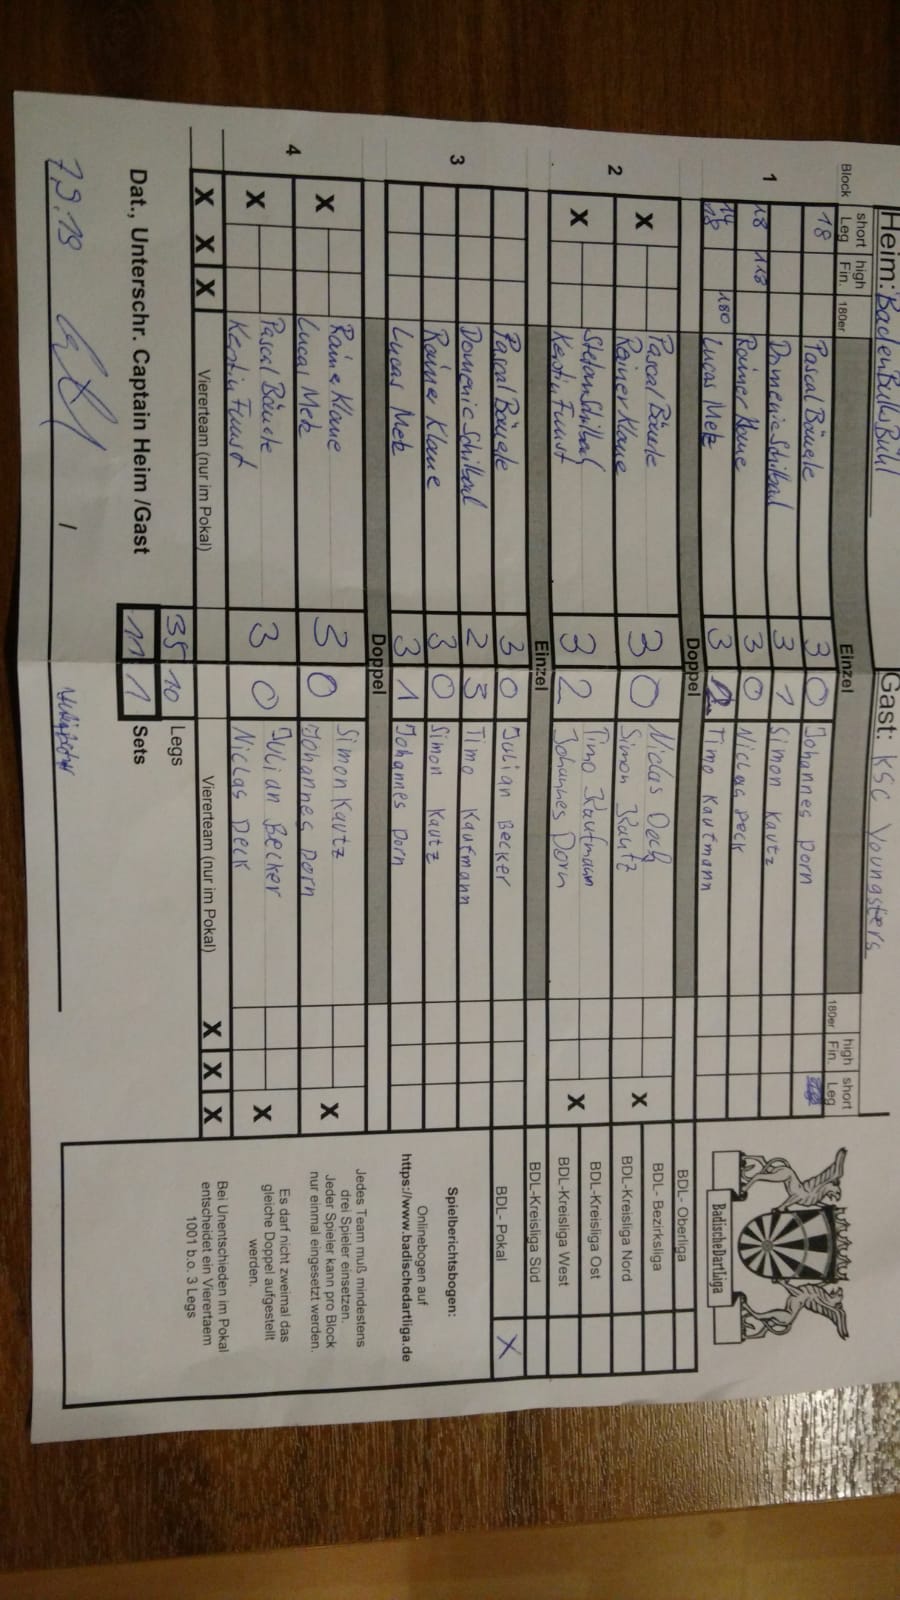 Heim: BadenBulls Bühl Gast: KSC Youngsters
Block short Leg high Fin. 180er Einzel 180er high Fin. short Leg
1 18 Pascal Bäuerle 3 0 Johannes Dorn
Domenic Schilbad 3 1 Simon Kautz
18 118 Rainer Klone 3 0 Niclas Deck
18 180 Lucas Metz 3 Timo Kaufmann
Doppel
2 X Pascal Bäuerle 3 0 Niclas Deck X
Rainer Klone Simon Kautz
X 3 2 Timo Kaufmann X
Kerstin Funst Johannes Dorn
Einzel
3 Pascal Bäuerle 3 0 Julian Becker
Domenic Schilbad 2 3 Timo Kaufmann
Rainer Klone 3 0 Simon Kautz
Lucas Metz 3 1 Johannes Dorn
Doppel
4 X Rainer Klone 3 0 Simon Kautz X
Lucas Metz Johannes Dorn
X Pascal Bäuerle 3 0 Julian Becker X
Kerstin Funst Niclas Deck
X X X Viererteam (nur im Pokal) Viererteam (nur im Pokal) X X X
35 10 Legs
Dat., Unterschr. Captain Heim /Gast 11 1 Sets
7.9.19 /
BadischeDartLiga
BDL- Oberliga
BDL- Bezirksliga
BDL-Kreisliga Nord
BDL-Kreisliga Ost
BDL-Kreisliga West
BDL-Kreisliga Süd
BDL- Pokal X
Spielberichtsbogen:
Onlinebogen auf
https://www.badischedartliga.de
Jedes Team muß mindestens
drei Spieler einsetzen.
Jeder Spieler kann pro Block
nur einmal eingesetzt werden.
Es darf nicht zweimal das
gleiche Doppel aufgestellt
werden.
Bei Unentschieden im Pokal
entscheidet ein Vierertaem
1001 b.o. 3 Legs